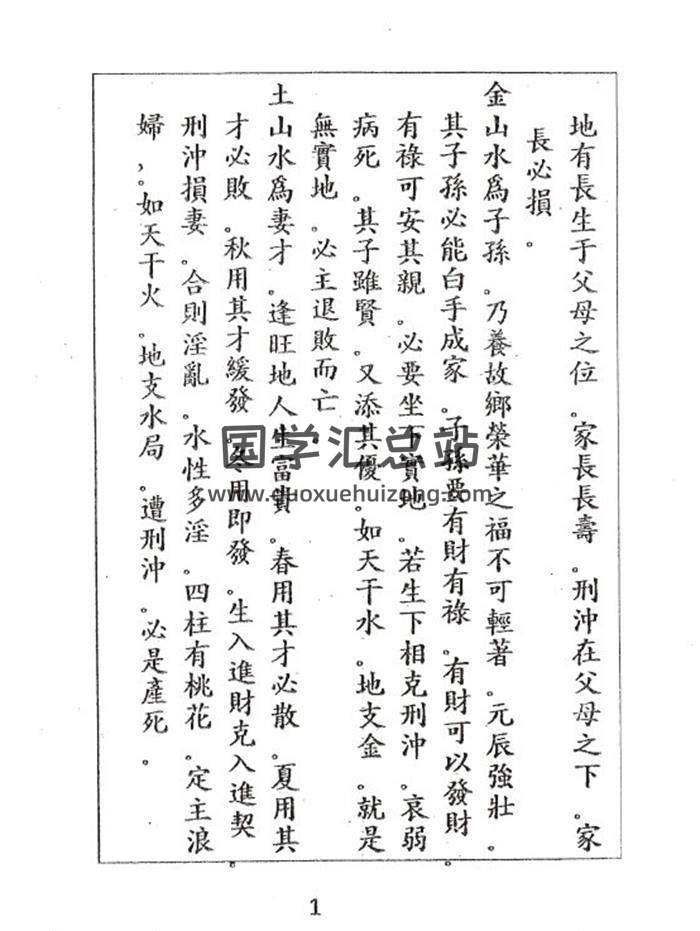 地有長生于父母之位。家長長壽。刑沖在父母之下。家
長必損。
金山水爲子孫。乃養故鄉榮華之福不可輕著。元辰強壯。
其子孫必能白手成家。子孫要有財有祿。有財可以發財。
有祿可安其親。必要坐下實地。若生下相克刑沖。哀弱
病死。其子雖賢。又添其優。如天干水。地支金。就是
無實地。必主退敗而亡。
土山水爲妻才。逢旺地人生富貴。春用其才必散。夏用其
才必敗。秋用其才緩發。冬用即發。生入進財克入進契。
刑沖損妻。合則淫亂。水性多淫。四柱有桃花。定主浪
婦,。如天干火。地支水局。遭刑沖。必是產死。
国学汇总站
www.guoxuehuizong.com
1